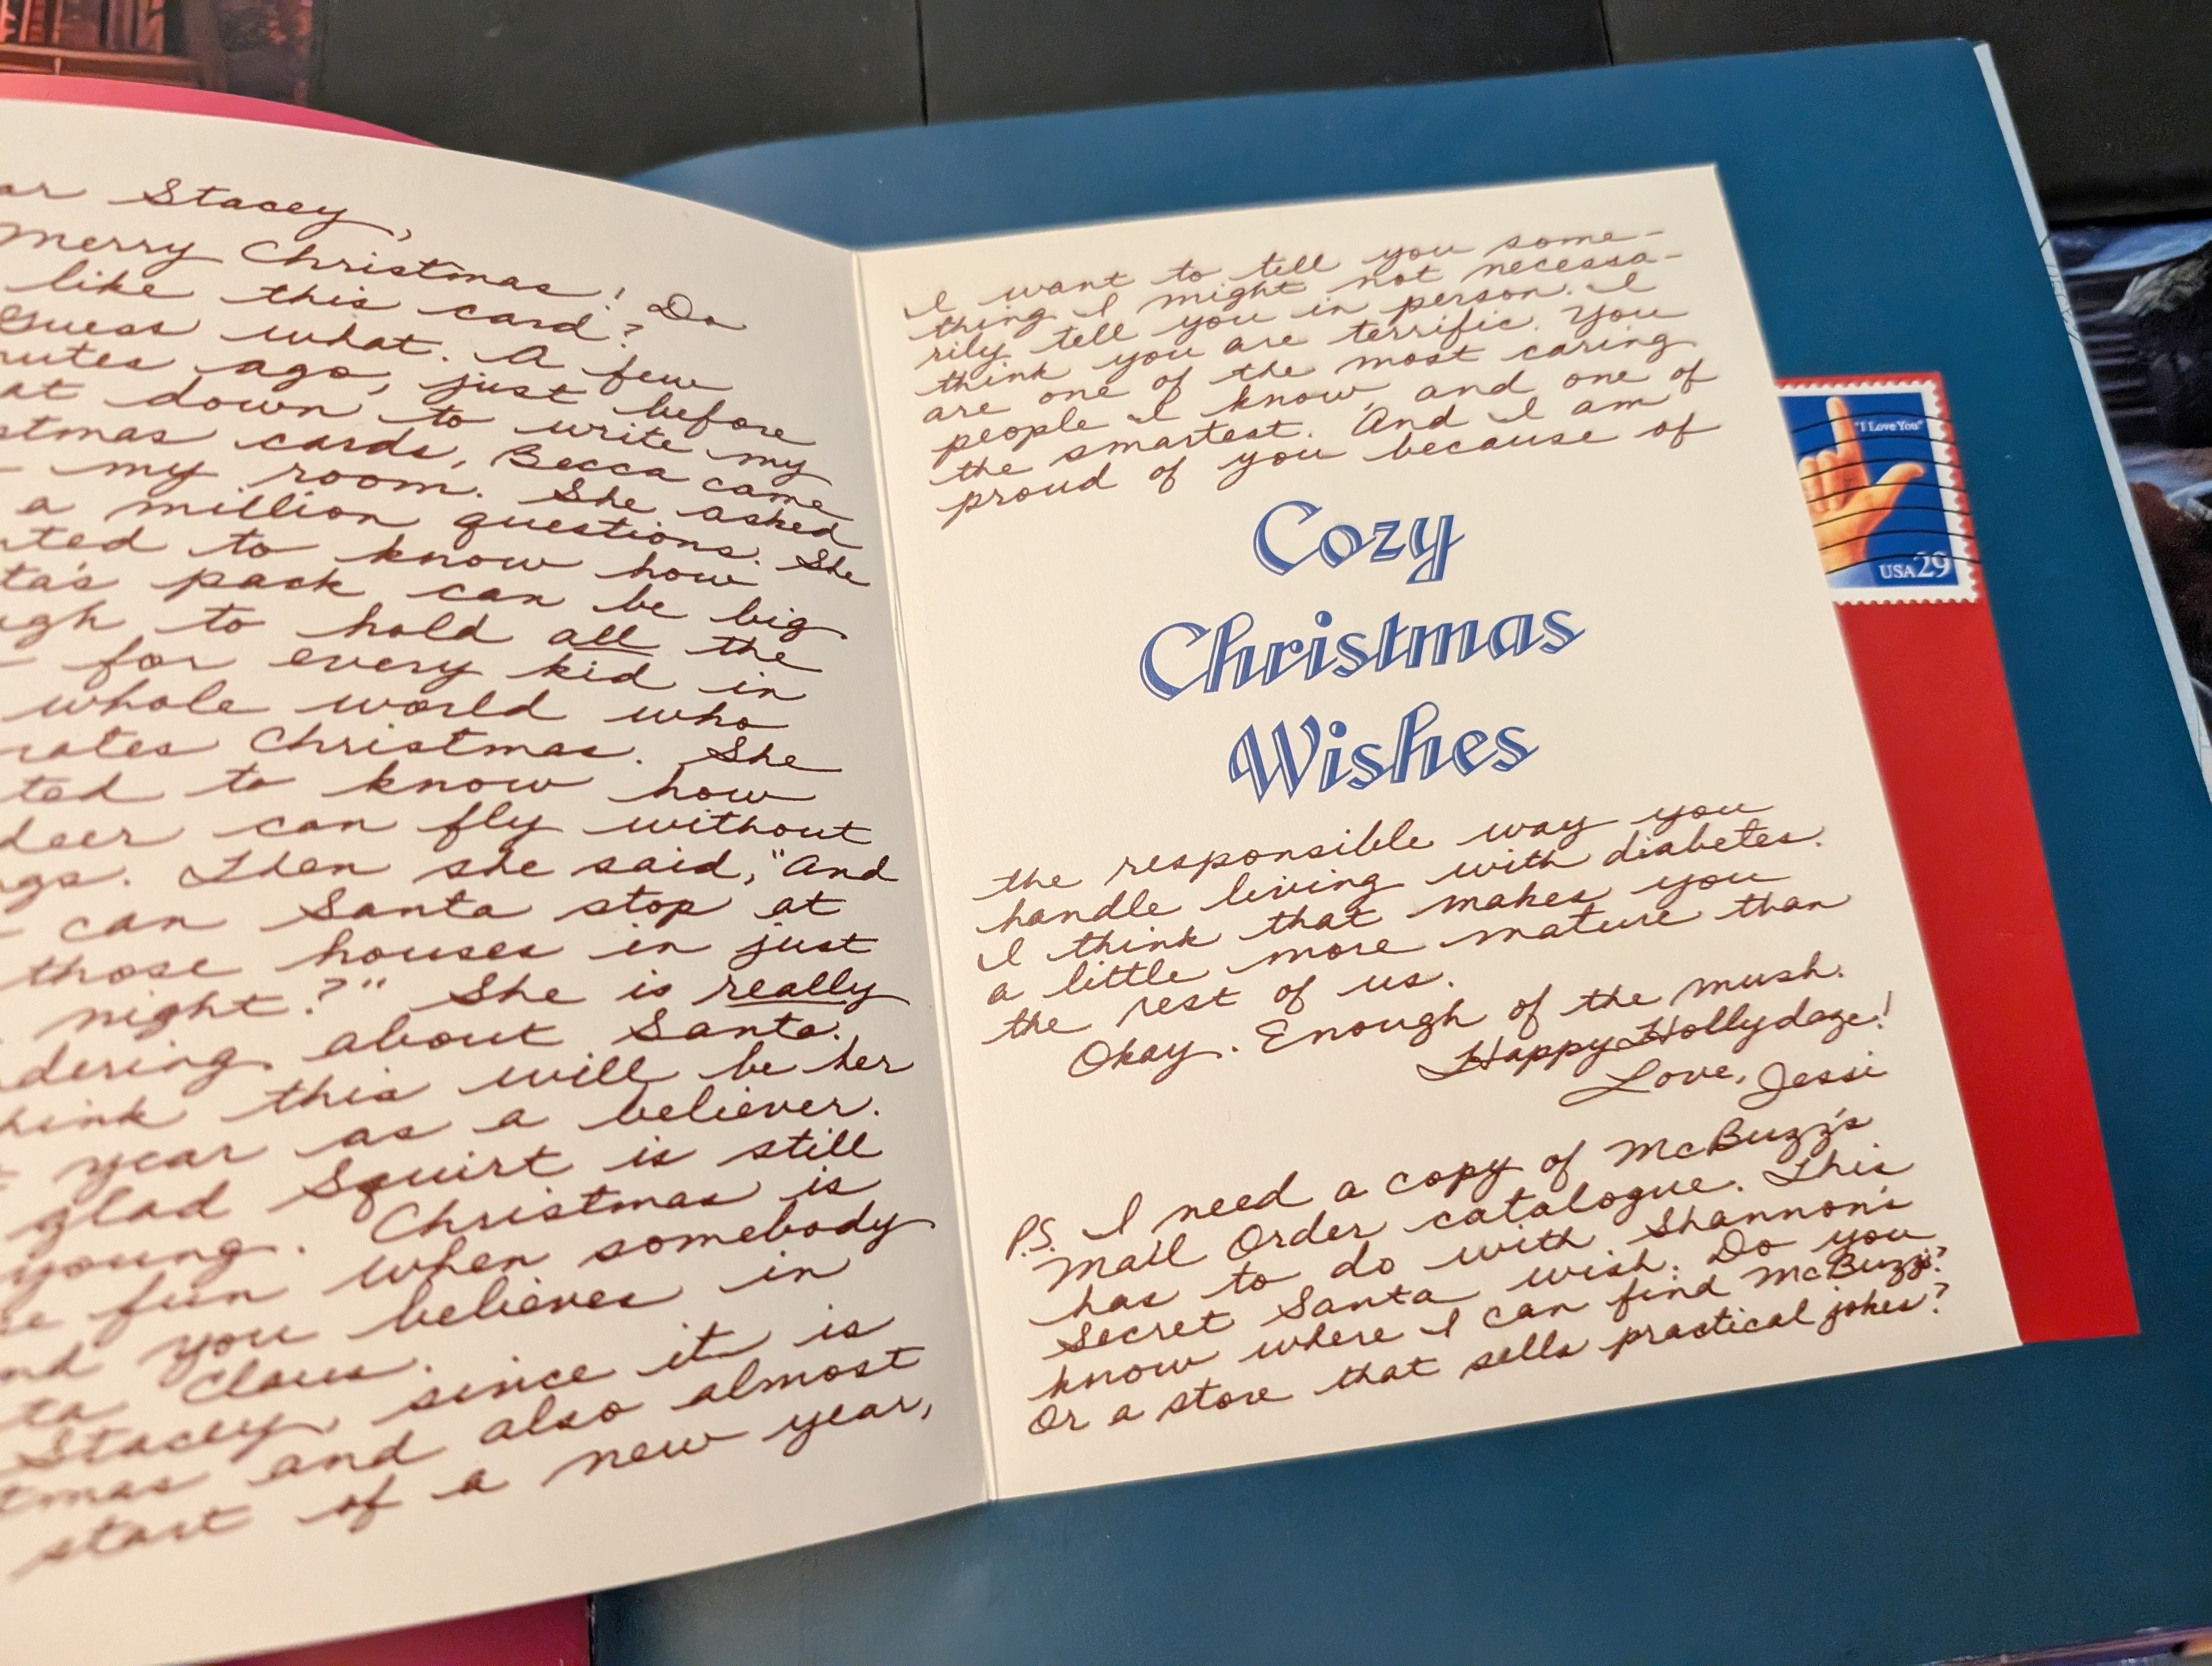 Stacey,
Merry Christmas! Do
like this card?
Guess what. A few
ago, just before
at down to write my
cards, Becca came
my room. She asked
a million questions. She
to know how
pack can be big
to hold all the
for every kid in
whole world who
Christmas. She
to know how
can fly without
Then she said, "And
can Santa stop at
those houses in just
night?" She is really
about Santa.
this will be her
year as a believer.
glad Squirt is still
young. Christmas is
fun when somebody
you believes in
Claus.
Stacey, since it is
and also almost
start of a new year,
I want to tell you some-
thing I might not necessa-
rily tell you in person. I
think you are terrific. You
are one of the most caring
people I know, and one of
the smartest. And I am
proud of you because of
Cozy
Christmas
Wishes
the responsible way you
handle living with diabetes.
I think that makes you
a little more mature than
the rest of us.
Okay. Enough of the mush.
Happy Hollydaze!
Love, Jessi
P.S. I need a copy of McBuzz's
Mail Order catalogue. This
has to do with Shannon's
Secret Santa wish. Do you
know where I can find McBuzz's?
Or a store that sells practical jokes?
"I Love You"
USA 29